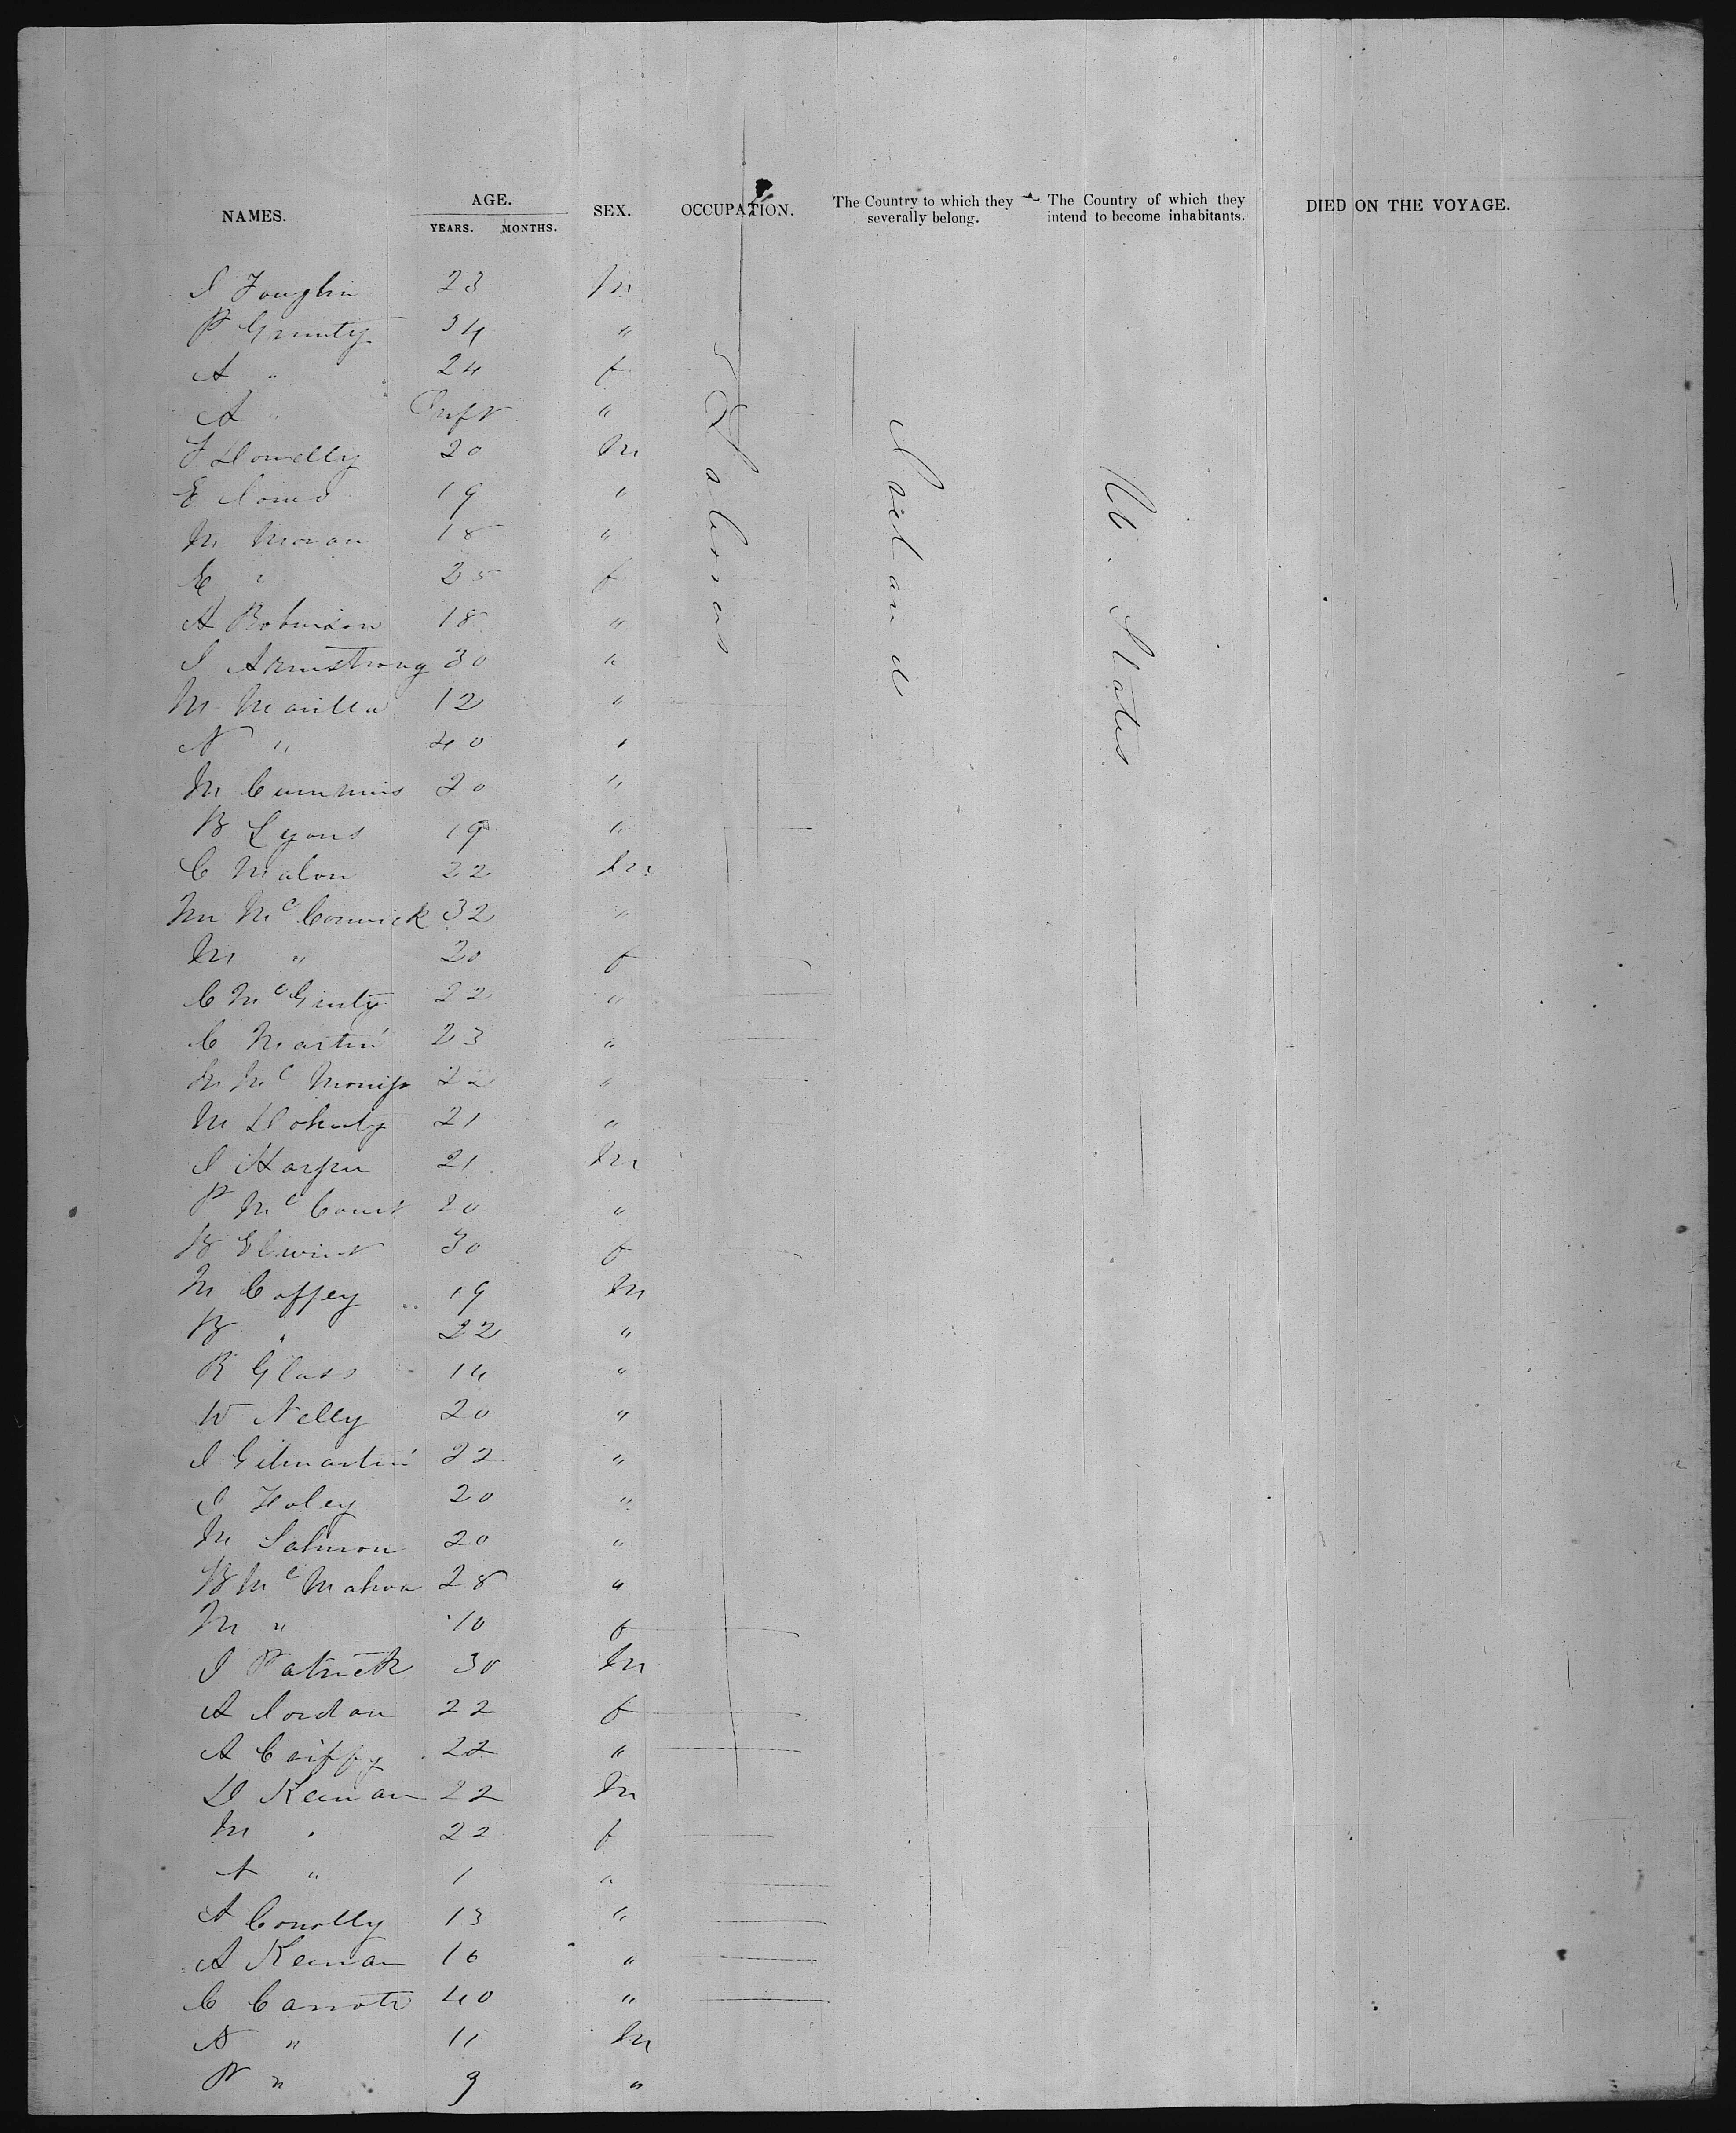 NAMES. AGE. SEX. OCCUPATION. The Country to which they severally belong. The Country of which they intend to become inhabitants. DIED ON THE VOYAGE.
YEARS. MONTHS.
Laborers
Ireland
U. States
J 23 M
P 34 "
A " 24 f
A " Inft "
J Donnelly 20 M
E Jones 19 "
M Moran 18 "
E " 25 f
A Robinson 18 "
J Armstrong 30 "
M 12 "
N " 40 "
M Cummins 20 "
B Lyons 19 "
C Malon 22 M
M McCormick 32 "
M " 20 f
C McGinty 22 "
C Martin 23 "
M Mc 22 "
M Doherty 21 "
J Harper 21 M
P McCourt 20 "
B 30 f
M Coffey 19 M
B " 22 "
R Glass 14 "
W Nelly 20 "
J Gilmartin 22 "
J Foley 20 "
M Salmon 20 "
B McMahon 28 "
M " 10 f
J Patrick 30 M
A Jordan 22 f
A 22 "
D Keenan 22 M
M " 22 f
A " 1 "
A Conolly 13 "
A Keenan 16 "
C 40 "
N " 11 M
P " 9 "